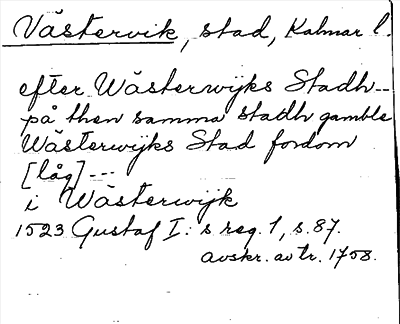 Västervik, stad, Kalmar l.
efter Wästerwijks Stadh--
på then samma stadh gamble
Wästerwijks Stad fordom
[låg]---
i Wästerwijk
1523 Gustaf I: s reg. 1, s. 87.
avskr. av tr. 1758.